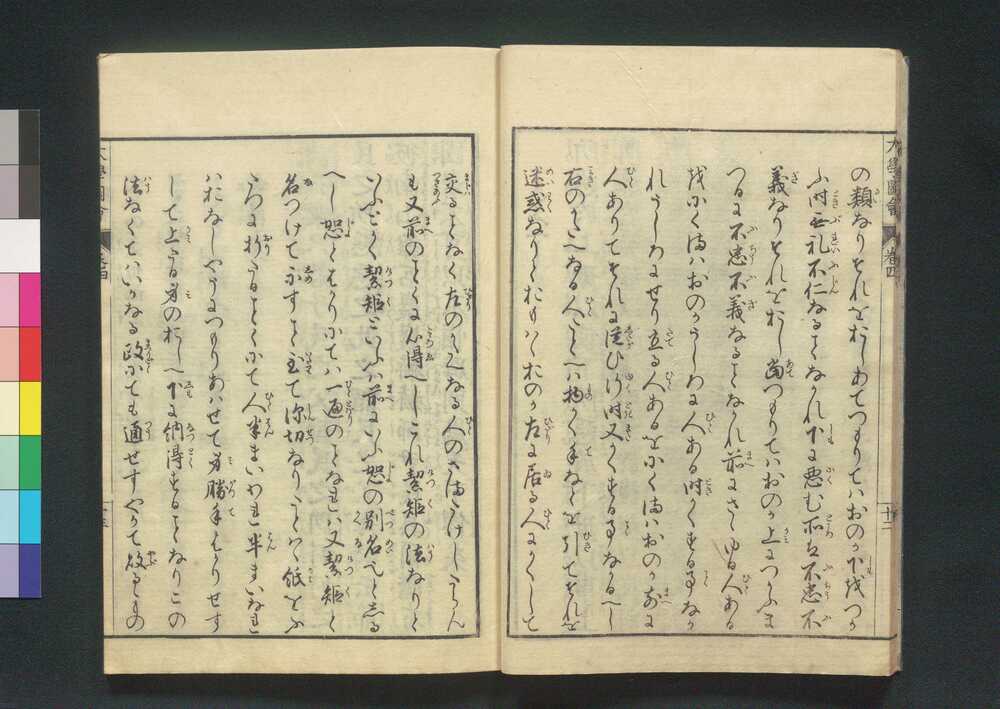 大學圖會 卷四 十二
の類なりそれをおしあてつもりてハおのか下をつか
ふ時無礼不仁なることなかれ下に悪む所は不忠不
義なりそれをおし當つもりてハおのか上につかふま
つるに不忠不義なることなかれ前にさしゆる人ある
をにくまハおのかうしろに人ある時かくすることなか
れうしろにせり立る人あるをにくまハおのか前に
人ありてそれに從ひ行時又かくすることなかるへし
右のかたへなる人ことハ物かく手なとを引てそれを
迷惑なりとおもハゝおのか左に居る人にかくして
交ることなく左のかたへなる人のさまたけしたらん
も又前のことくに心得へしこれ絜矩の法なりと
いふことく絜矩といふハ前にいふ恕の別名としる
へし恕とはかりにてハ一遍のことなれハ又絜矩と
名つけて示すこと至て深切なりことハ紙をふ
たつに折たることくにて人半まいわれ半まいなれ
ハたになしやうにつもりあハせて身勝手はかりせす
して上たる身のおしへ下に納得することなりこの
法なくていかなる政にても通せすやかて敗るもの
大學圖會 卷四